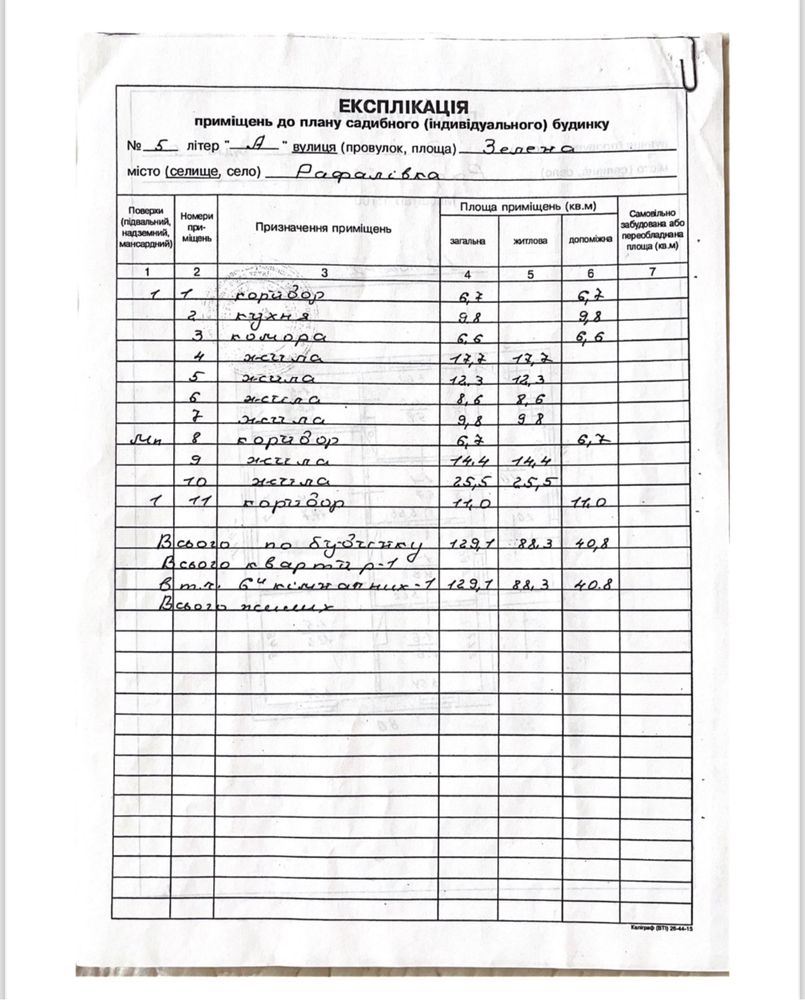 ЕКСПЛІКАЦІЯ
приміщень до плану садибного (індивідуального) будинку
№ 5 літер "А" вулиця (провулок, площа) Зелена
місто (селище, село) Рафалівка
Поверхи (підвальний, надземний, мансардний) Номери при- міщень Призначення приміщень Площа приміщень (кв.м) загальна житлова допоміжна Самовільно забудована або переобладнана площа (кв.м)
1 2 3 4 5 6 7
1 1 коридор 6,7 6,7
2 кухня 9,8 9,8
3 комора 6,6 6,6
4 жила 17,7 17,7
5 жила 12,3 12,3
6 жила 8,6 8,6
7 жила 9,8 9 8
Мп 8 коридор 6,7 6,7
9 жила 14.4 14,4
10 жила 25,5 25,5
1 11 коридор 11,0 11,0
Всього по будинку 129,1 88,3 40,8
Всього квартир-1
в т.ч. 6и кімнатних-1 129,1 88,3 40.8
Всього жилих
Каліграф (ВТІ) 26-44-15